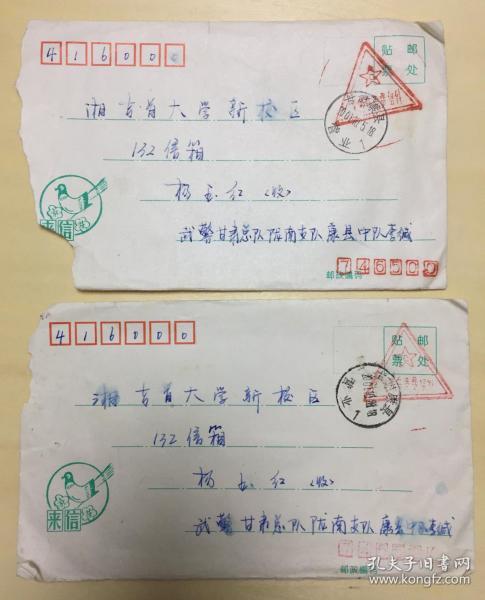 416000
贴 邮
票 处
湘吉首大学新校区
132信箱
杨玉红(收)
来信
武警甘肃总队陇南支队康县中队李诚
746500
邮政编码
416000
贴 邮
票 处
湘吉首大学新校区
132信箱
杨玉红(收)
来信
武警甘肃总队陇南支队康县中队李诚
邮政编码
孔夫子旧书网
www.kongfz.com